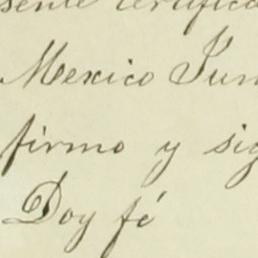 sente certifica
Mexico Jun
firmo y sig
Doy fé